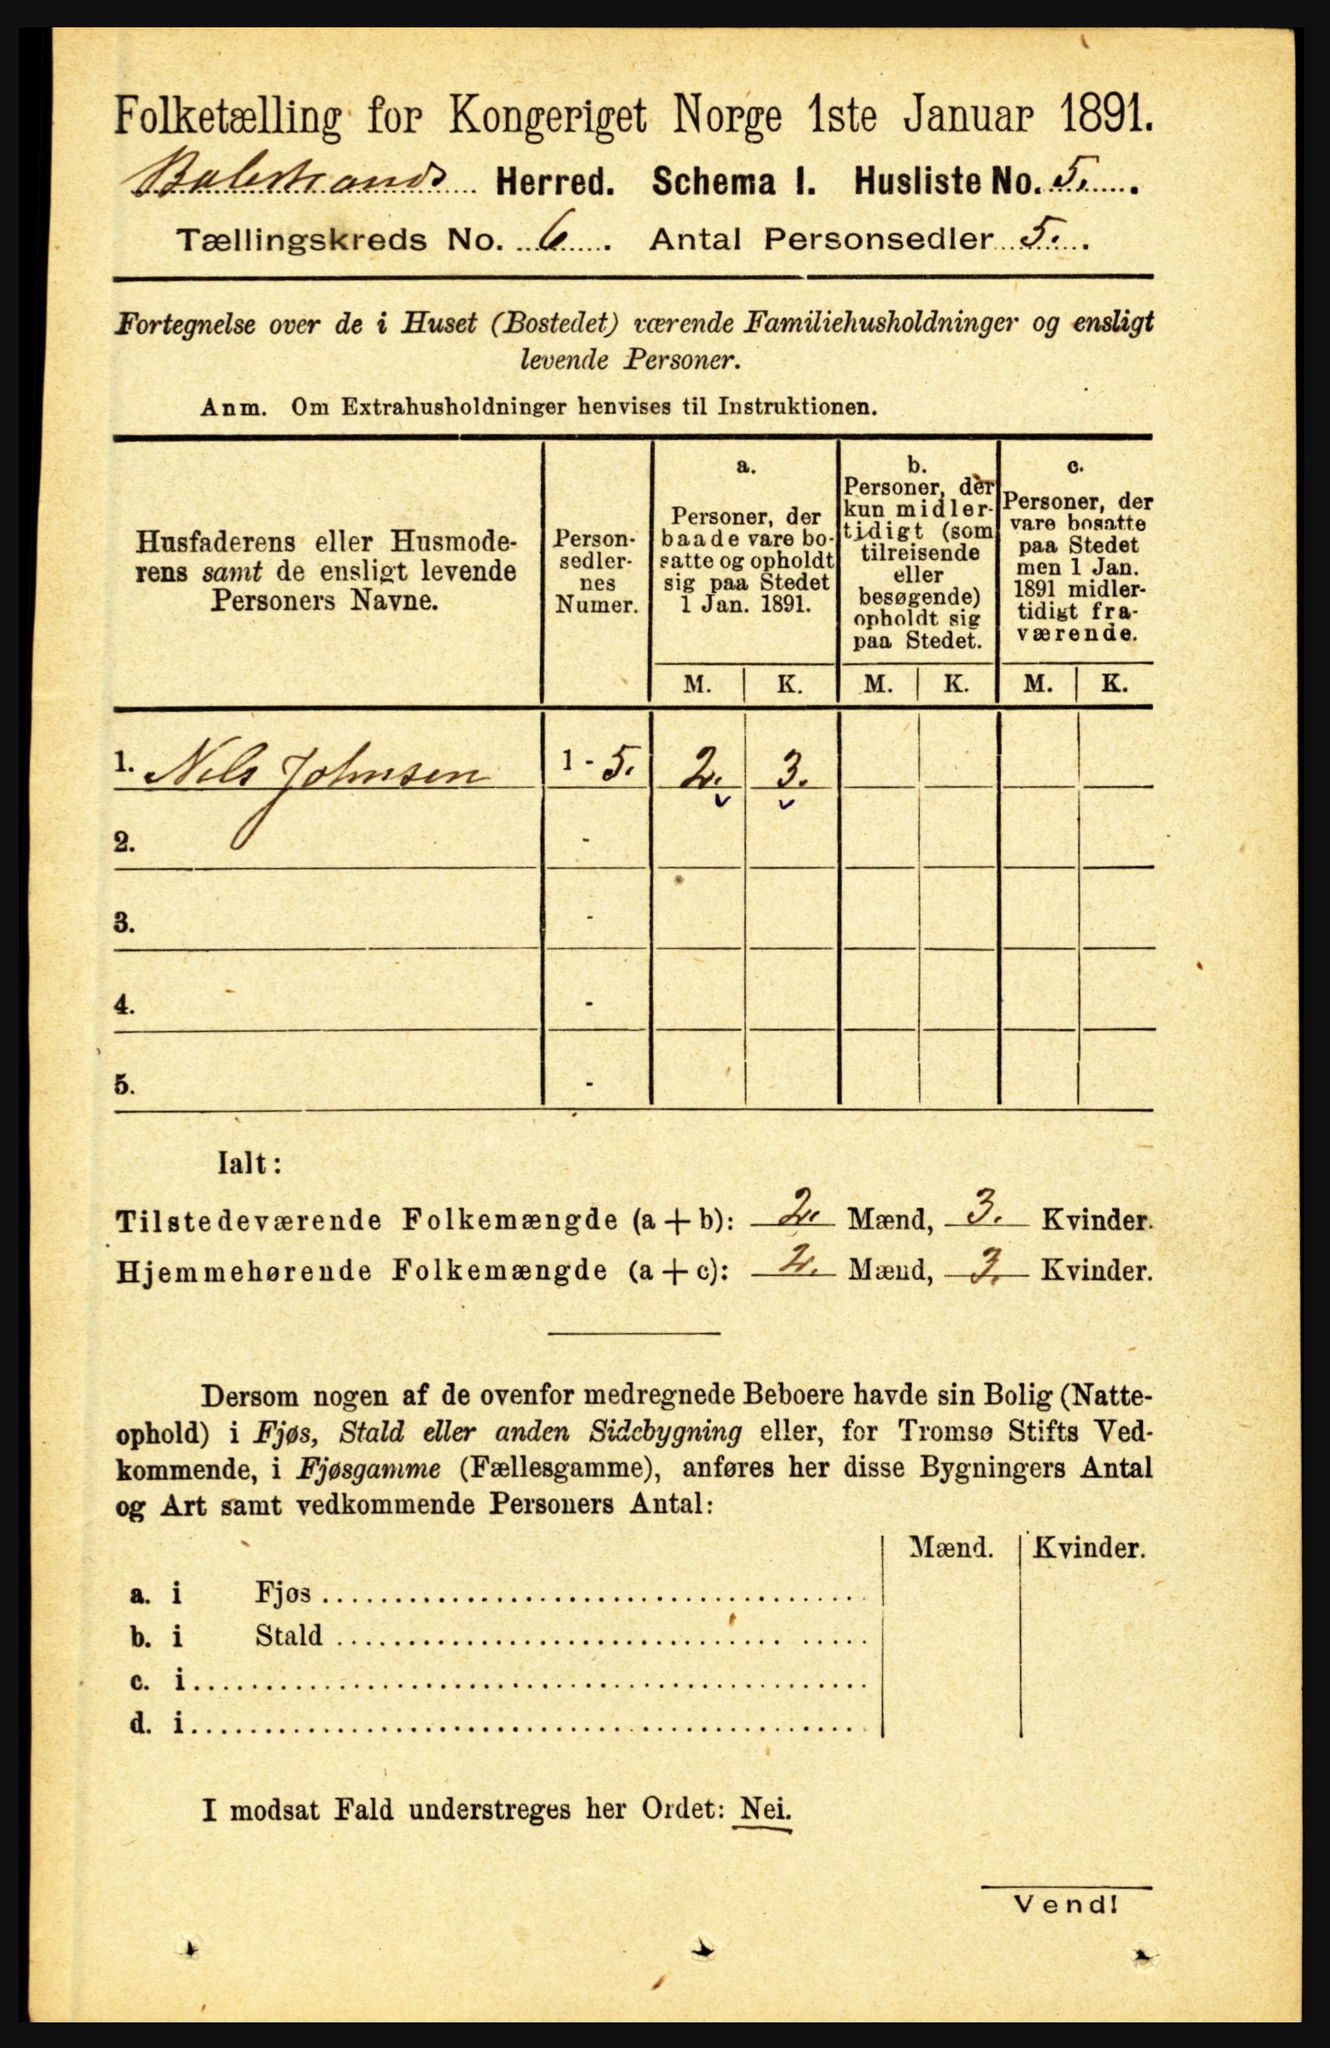 Folketælling for Kongeriget Norge 1ste Januar 1891.
Balestrands Herred. Schema I. Husliste No. 5.
Tællingskreds No. 6. Antal Personsedler 5.
Fortegnelse over de i Huset (Bostedet) værende Familiehusholdninger og ensligt
levende Personer.
Anm. Om Extrahusholdninger henvises til Instruktionen.
Husfaderens eller Husmode-
rens samt de ensligt levende
Personers Navne.
Person-
sedler-
nes
Numer.
a.
Personer, der
baade vare bo-
satte og opholdt
sig paa Stedet
1 Jan. 1891.
b.
Personer, der
kun midler-
tidigt (som
tilreisende
eller
besøgende)
opholdt sig
paa Stedet.
c.
Personer, der
vare bosatte
paa Stedet
men 1 Jan.
1891 midler-
tidigt fra-
værende.
M. K. M. K. M. K.
1. Nils Johnsen 1 - 5. 2. 3.
2. -
3. -
4. -
5. -
Ialt:
Tilstedeværende Folkemængde (a + b): 2. Mænd, 3. Kvinder.
Hjemmehørende Folkemængde (a + c): 2. Mænd, 3. Kvinder.
Dersom nogen af de ovenfor medregnede Beboere havde sin Bolig (Natte-
ophold) i Fjøs, Stald eller anden Sidebygning eller, for Tromsø Stifts Ved-
kommende, i Fjøsgamme (Fællesgamme), anføres her disse Bygningers Antal
og Art samt vedkommende Personers Antal:
Mænd. Kvinder.
a. i Fjøs
b. i Stald
c. i
d. i
I modsat Fald understreges her Ordet: Nei.
Vend!